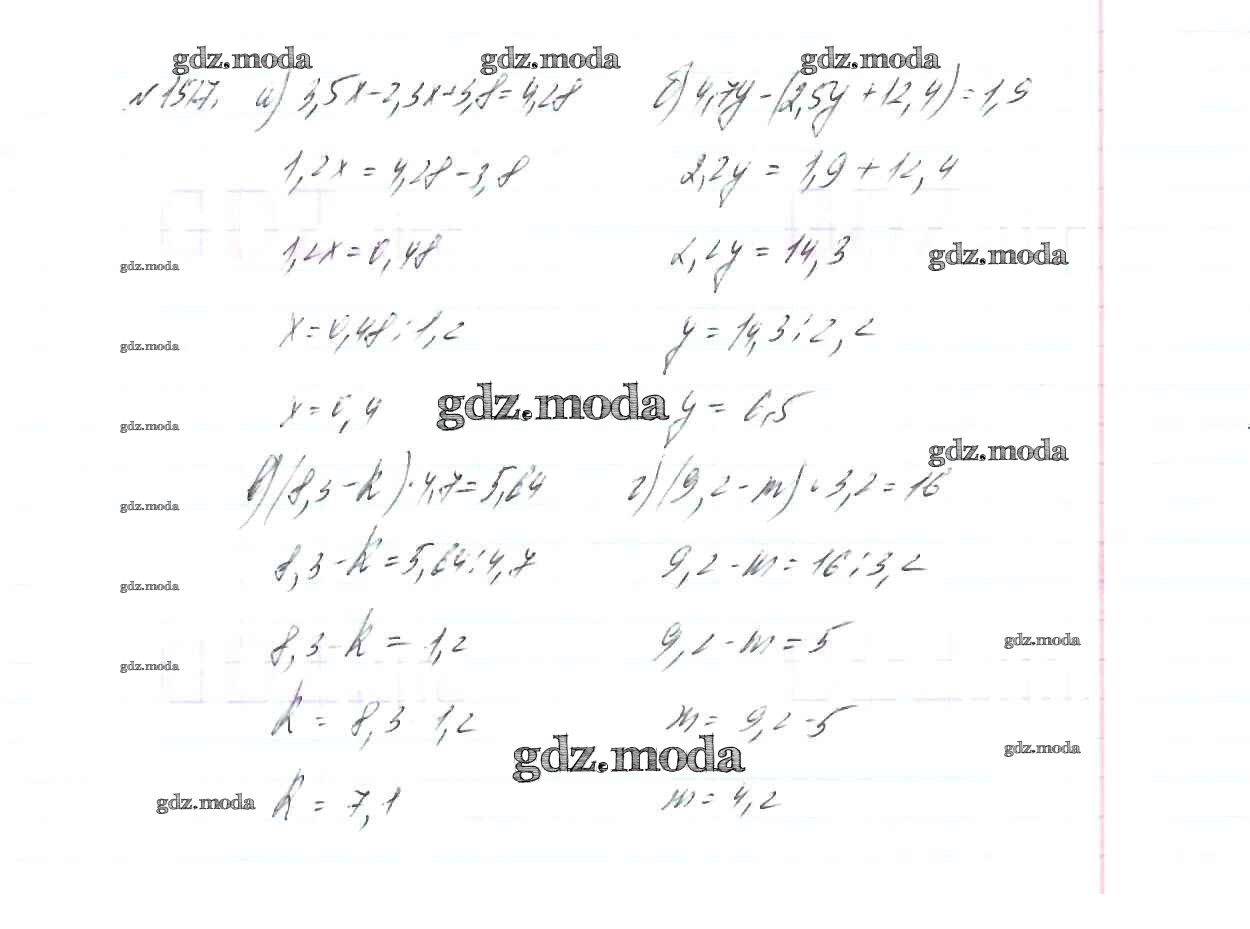 gdz.moda gdz.moda gdz.moda
№1517. а) 3,5x-2,3x+3,8=4,28 б) 4,7y-(2,5y+12,4)=1,9
1,2x=4,28-3,8 2,2y=1,9+12,4
1,2x=0,48 2,2y=14,3 gdz.moda
gdz.moda
x=0,48:1,2 y=14,3:2,2
gdz.moda
x=0,4 gdz.moda y=6,5
gdz.moda
gdz.moda
в) (8,3-k)·4,7=5,64 г) (9,2-m)·3,2=16
gdz.moda
8,3-k=5,64:4,7 9,2-m=16:3,2
gdz.moda
8,3-k=1,2 9,2-m=5 gdz.moda
gdz.moda
k=8,3 1,2 m=9,2-5
gdz.moda gdz.moda
gdz.moda k=7,1 m=4,2